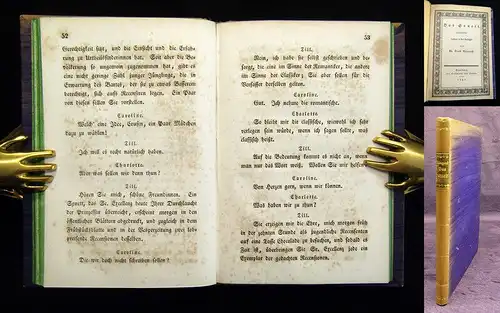 52
Gerechtigkeit sitzt, und die Einsicht und die Erfah-
rung zu Urtheilsfinderinnen hat. Seit aber die Be-
völkerung so ungemein zugenommen hat, giebt
es eine nicht geringe Zahl junger Jünglinge, die
in Erwartung des Bartes, der sie zu etwas Besserem
berechtigt, sich aufs Recensiren legen. Ein Paar
von diesen sollen Sie vorstellen.
Caroline.
Welch' eine Idee, Cousin, ein Paar Mädchen
dazu zu wählen!
Till.
Ich will es recht natürlich haben.
Charlotte.
Aber was sollen wir denn thun?
Till.
Hören Sie mich, schöne Freundinnen. Ein
Sonett, das Se. Excellenz heute Ihrer Durchlaucht
der Prinzessin überreicht, erscheint morgen in den
öffentlichen Blättern abgedruckt, und zugleich in dem
Frühstücksblatt und in der Vesperzeitung zwei lob-
preisende Recensionen desselben.
Caroline.
Die wir doch nicht schreiben sollen?
53
Till.
Nein, ich habe sie selbst geschrieben und die
sorge, eine im Sinne der Romantiker, die andere
im Sinne der Classiker; Sie aber sollen für die
Verfasser derselben gelten.
Caroline.
Gut. Ich nehme die romantische.
Charlotte.
So bleibt mir die classische, wiewohl ich sehr
verlegen sein würde, wenn ich sagen sollte, was
classisch heißt.
Till.
Auf die Bedeutung kommt es nicht an, wenn
man nur das Wort weiß. Wollen Sie mir helfen?
Caroline.
Von Herzen gern, wenn wir können.
Charlotte.
Was haben wir zu thun?
Till.
Sie erzeigen mir die Ehre, mich morgen früh
in der zehnten Stunde als jugendliche Recensenten
auf eine Tasse Chocolade zu besuchen, und sobald es
Zeit ist, überbringen Sie Sr. Excellenz jede ein
Exemplar der gedachten Recensionen.
Das Sonett.